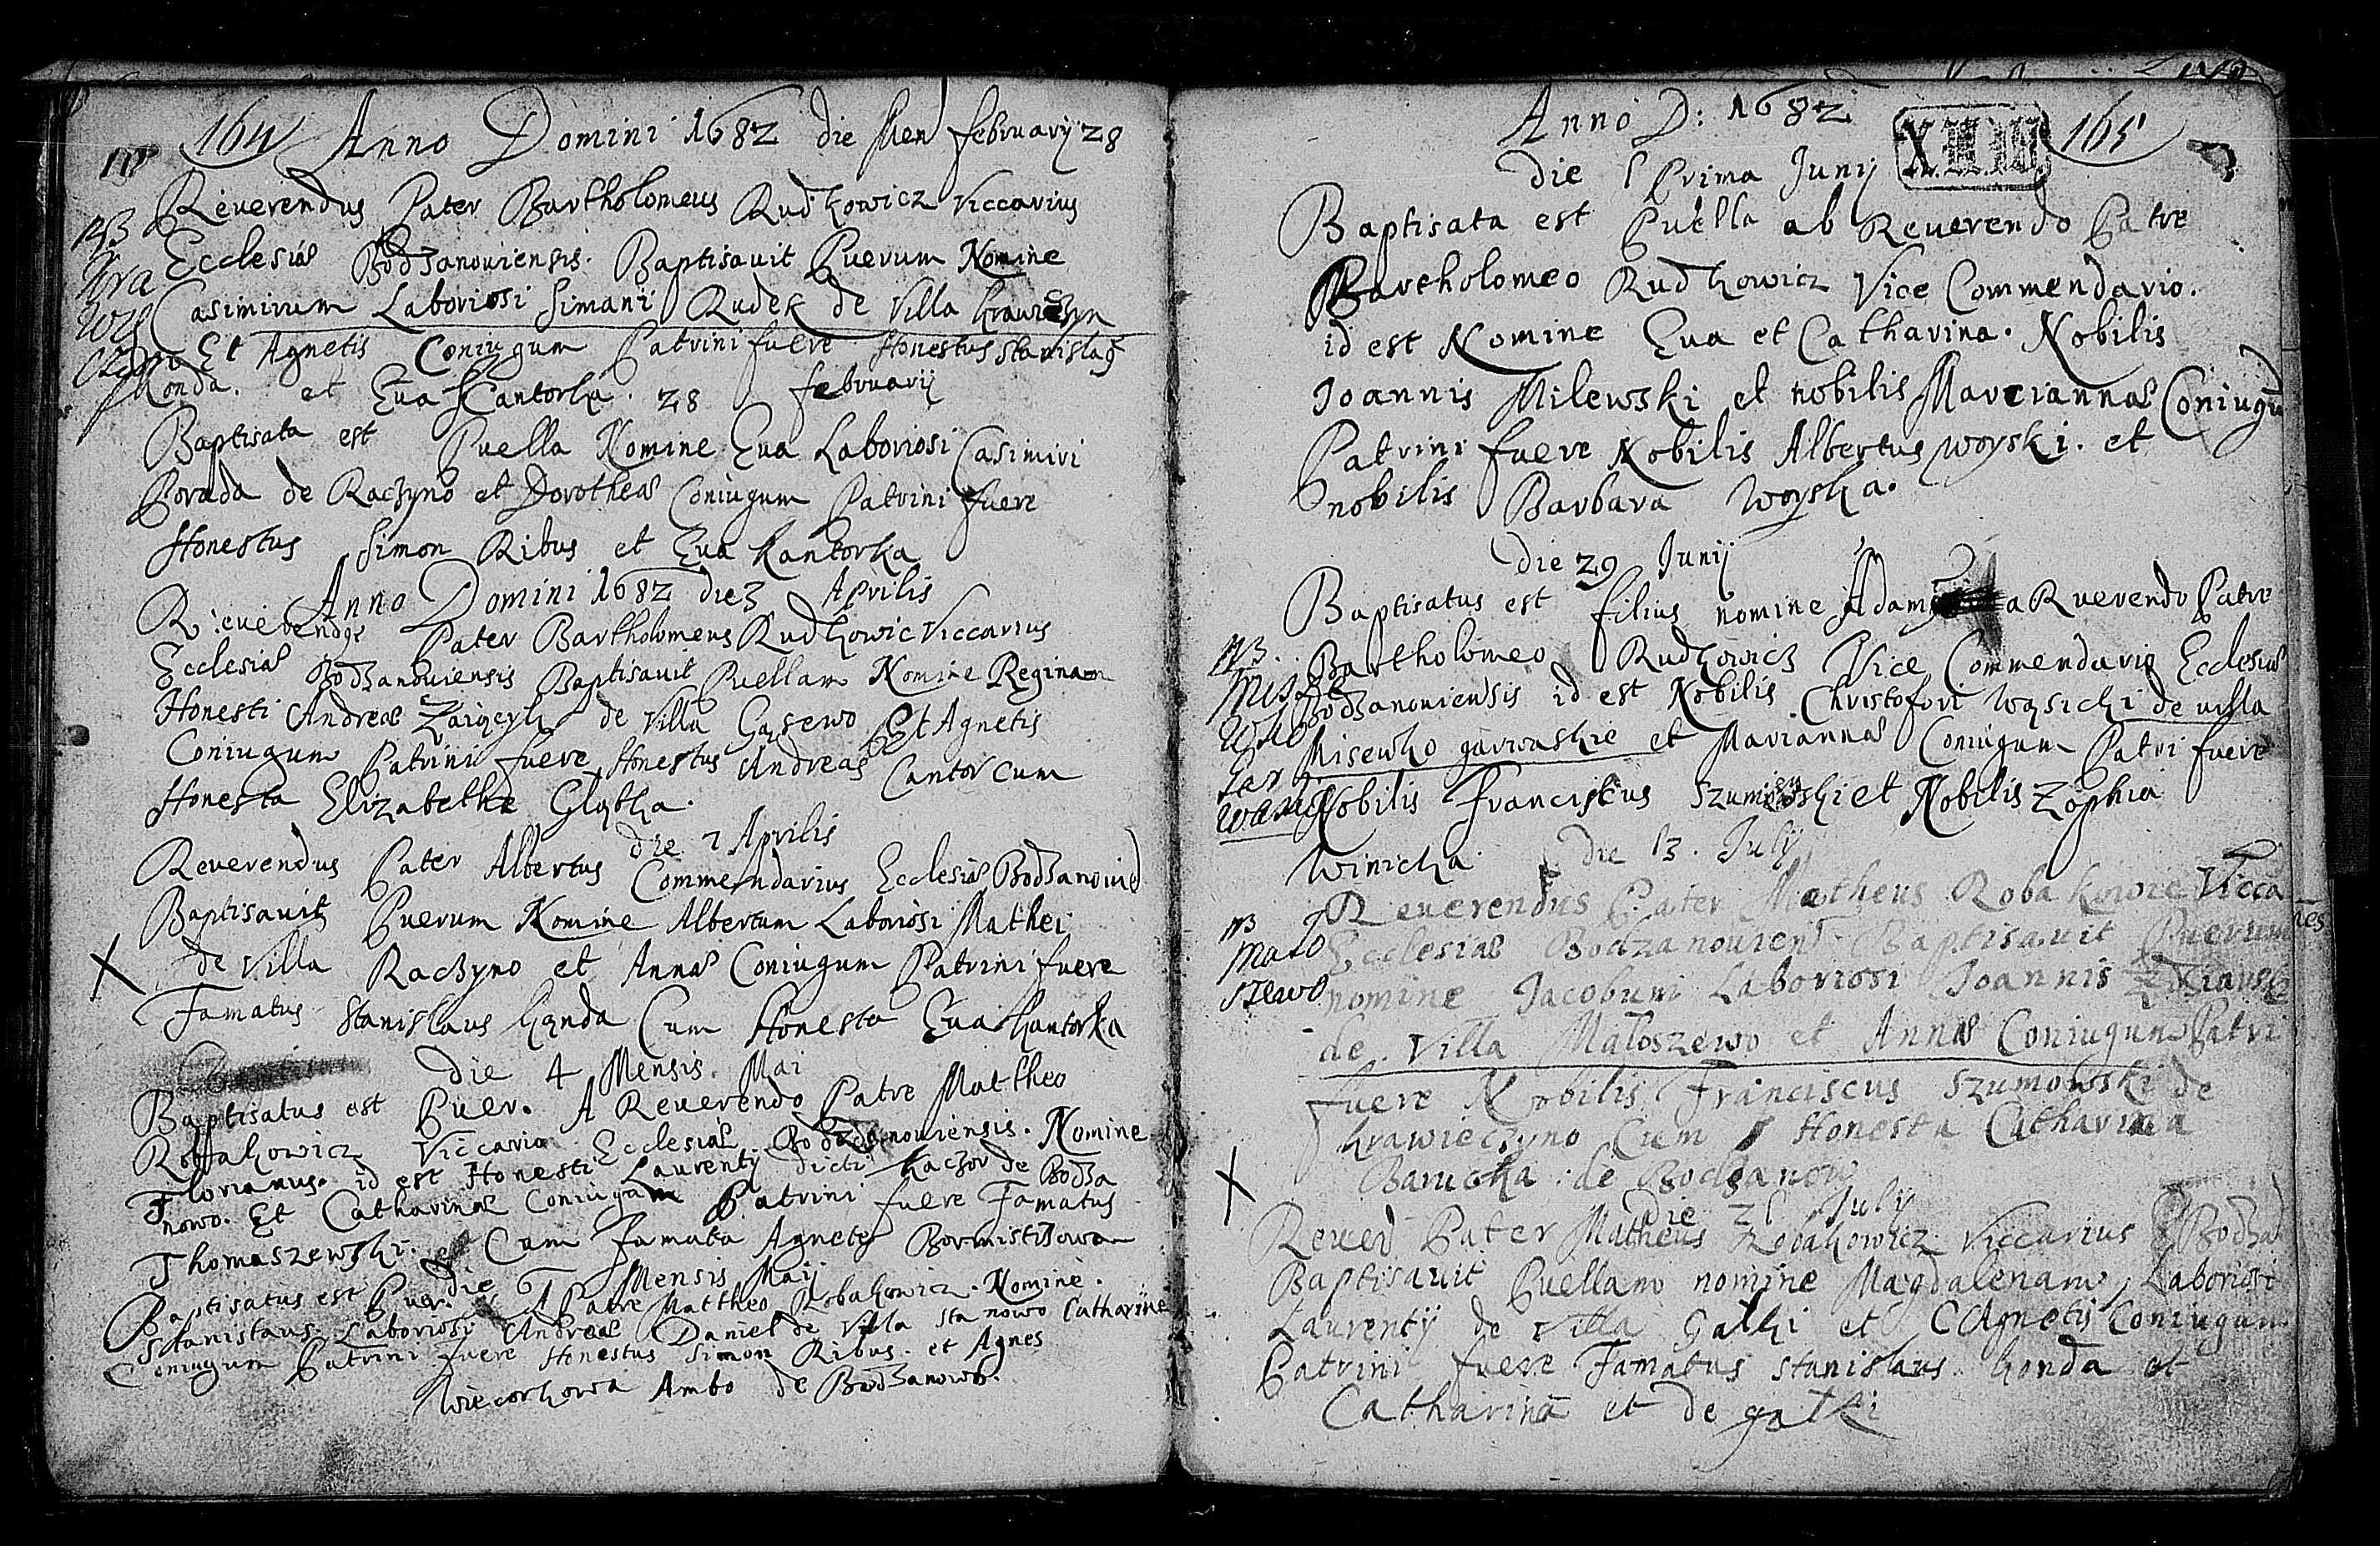 164 Anno Domini 1682 die Men february 28
Reuerendus Pater Bartholomeus Rudkowicz Viccarius
Ecclesiæ Bodzanouiensis. Baptisauit Puerum Nomine
Casimirum Laboriosi Simani Rudek de Villa Krawiczyn
Et Agnetis Coniugum Patrini fuere Honestus Stanislaus
Konda. et Eua Kantorka. 28 februarij
Baptisata est Puella Nomine Eua Laboriosi Casimiri
Boruda de Raczyno et Dorotheæ Coniugum Patrini fuere
Honestus Simon Ribus et Eua Kantorka
Anno Domini 1682 die 3 Aprilis
Reuerendus Pater Bartholomeus Rudkowic Viccarius
Ecclesiæ Bodzanouiensis Baptisauit Puellam Nomine Reginam
Honesti Andreæ de Villa Gąsewo Et Agnetis
Coniugum Patrini fuere Honestus Andreas Cantor cum
Honesta Elizabetha Glątka.
die 7 Aprilis
Reuerendus Pater Albertus Commendarius Ecclesiæ Bodzanouie
Baptisauit Puerum Nomine Albertum Laboriosi Mathei
X de Villa Raczyno et Annæ Coniugum Patrini fuere
Famatus Stanislaus Kąnda Cum Honesta Eua Kantorka
die 4 Mensis Mai
Baptisatus est Puer. A Reuerendo Patre Mattheo
Robakowicz Viccario Ecclesiæ Bodzanouiensis. Nomine
Florianus. id est Honesti Laurentij dicti Kaczor de Bodza
nowo. Et Catharinæ Coniugum Patrini fuere Famatus
Thomaszewski. et Cum Famata Agnete Bormistrzowa
die 7 Mensis Maij
Baptisatus est Puer. A Patre Mattheo Robakowicz. Nomine.
Stanislaus Laboriosi Andreæ Daniel de Villa Stanowo Catharine
Coniugum Patrini fuere Honestus Simon Ribus. et Agnes
Wiecorkowa Ambo de Bodzanowo.
Anno D: 1682 165
die 1 Prima Junij
Baptisata est Puella ab Reuerendo Patre
Bartholomeo Rudkowicz Vice Commendario.
id est Nomine Eua et Catharina. Nobilis
Joannis Milewski et nobilis Mariannæ Coniugum
Patrini fuere Nobilis Albertus Woyski. et
nobilis Barbara Woyska.
die 29 Junij
Baptisatus est filius nomine Adam a Reuerendo Patre
NB. Bartholomeo Rudkowicz Vice Commendario Ecclesiæ
Bodzanouiensis id est Nobilis Christofori Wąsicki de villa
Misewko garwaskie et Mariannæ Coniugum Patri fuere
Nobilis Franciscus Szumowski et Nobilis Zophia
Winicka. die 13. July
Reuerendus Pater Matheus Robakowic Vicca
NB Ecclesiæ Bodzanouien Baptisauit Puerum
Mało
szewo nomine Jacobum Laboriosi Joannis
de. Villa Małoszewo et Annæ Coniugum Patri
fuere Nobilis Franciscus Szumowski de
Krawieczyno Cum Honesta Catharina
X Barucka: de Bodzanow
die 21 July
Reuer Pater Matheus Robakowicz Viccarius Bodza
Baptisauit Puellam nomine Magdalenam, Laboriosi
Laurentij de Villa Gałki et Agnetis Coniugum
Patrini fuere Famatus Stanislaus Konda et
Catharina et de gałki